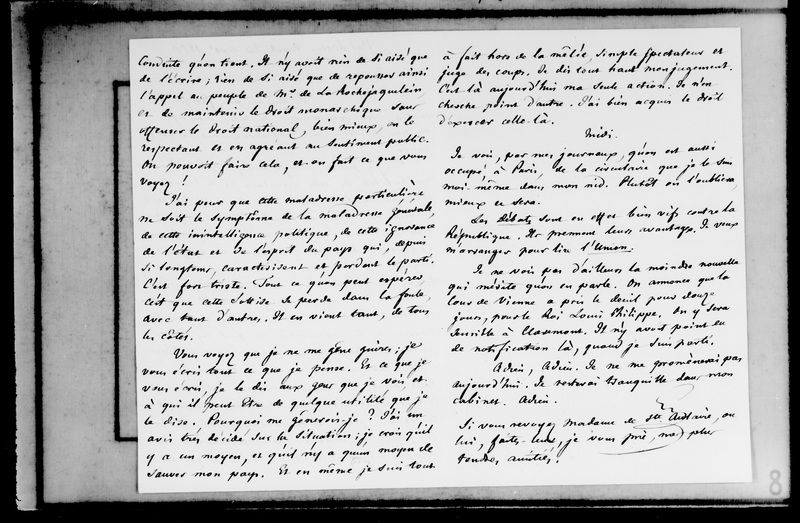 conduite qu'on tient. Il n'y avoit rien de si aisé que
de l'écrire ; rien de si aisé que de repousser ainsi
l'appel au peuple de Mr. de La Rochejaquelein
et de maintenir le droit monarchique sans
offenser le droit national, bien mieux, en le
respectant et en agréant au sentiment public.
On pouvoit faire cela, et on fait ce que vous
voyez !
J'ai peur que cette maladresse particulière
ne soit le symptôme de la maladresse générale,
de cette inintelligence politique, de cette ignorance
de l'état et de l'esprit du pays qui, depuis
si longtems, caractérisent et perdent le parti.
C'est fort triste. Tout ce qu'on peut espérer,
c'est que cette sottise se perde dans la foule,
avec tant d'autres. Il en vient tant, de tous
les côtés.
Vous voyez que je ne me gêne guères ; je
vous écris tout ce que je pense. Et ce que je
vous écris, je le dis aux gens que je vois et
à qui il peut être de quelque utilité que je
le dise. Pourquoi me gênerois-je ? J'ai un
avis très décidé sur la situation ; je crois qu'il
y a un moyen, et qu'il n'y a qu'un moyen de
sauver mon pays. Et en même je suis tout
à fait hors de la mêlée, simple spectateur et
juge des coups. Je dis tout haut mon jugement.
C'est là aujourd'hui ma seule action. Je n'en
cherche point d'autre. J'ai bien acquis le droit
d'exercer celle-là.
Midi.
Je vois, par mes journaux, qu'on est aussi
occupé, à Paris, de la circulaire que je le suis
moi-même dans mon nid. Plutôt on l'oubliera,
mieux ce sera.
Les Débats sont en effet bien vifs contre la
République. Ils prennent leurs avantages. Je veux
m'arranger pour lire l'Union.
Je ne vois pas d'ailleurs la moindre nouvelle
qui mérite qu'on en parle. On annonce que la
cour de Vienne a pris le deuil pour douze
jours, pour le Roi Louis Philippe. On y sera
sensible à Claremont. Il n'y avoit point eu
de notification là, quand je suis parti.
Adieu, Adieu. Je ne me promènerai pas
aujourd'hui. Je resterai tranquille dans mon
cabinet. Adieu.
Si vous revoyez Madame de Ste Aulaire, ou
lui, faites-leur, je vous prie, mes plus
tendres amitiés.
8